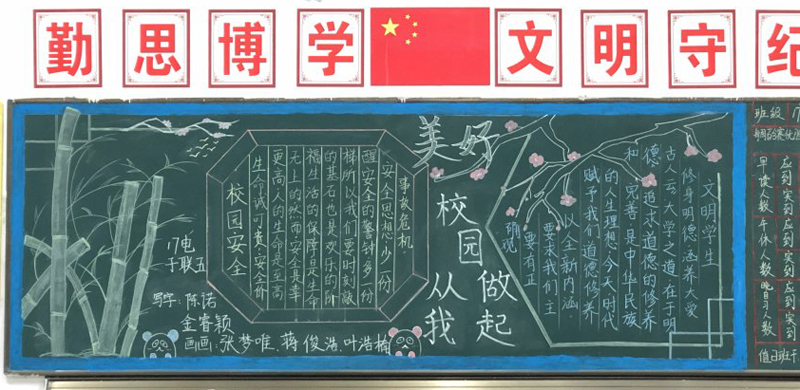 勤思博学 文明守纪
校园安全
生命诚可贵,安全价
更高人的生命是至高
无上的然而安全是幸
福生活的保障是生命
的基石也是欢乐的阶
梯所以我们要时刻敲
醒安全的警钟多一份
安全思想少一份
事故危机
17电
子联五
写字:陈诺
金睿颖
画画:张梦唯、蒋俊浩、叶浩楠
美好
校园
从我
做起
文明学生
修身明德涵养大爱
古人云大学之道在于明
德追求道德的修养
和完善是中华民族
的人生理想今天时代
赋予我们道德修养
以全新内涵
要求我们主
要有正
确观
班级 17
早读人数
应到
实到
午休人数
应到
实到
晚自习人数
应到
实到
值日班干